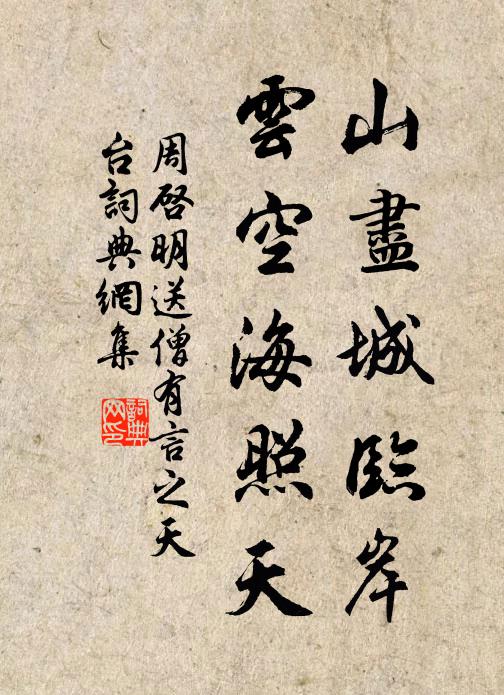 山盡城臨岸
雲空海照天
周啓明送僧有言之天
台詞典網集
詞典
网印